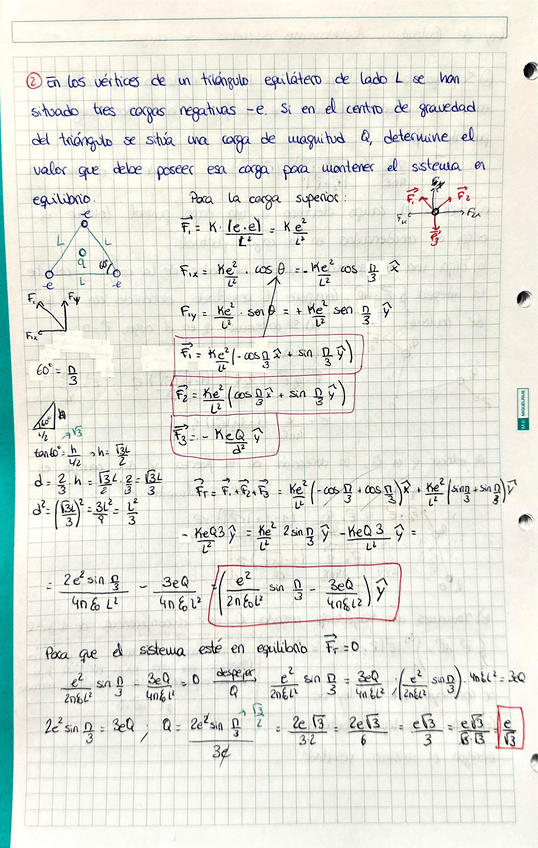 ② En los vértices de un triángulo equilátero de lado L se han
situado tres cargas negativas -e. Si en el centro de gravedad
del triángulo se sitúa una carga de magnitud Q, determine el
valor que debe poseer esa carga para mantener el sistema en
equilibrio.
Para la carga superior:
-e
L
L
q
60°
-e
L
-e
F₁
F₂
Fₓ
F₂ₓ
F₃
F⃗₁ = K · (e·e)/L² = K e²/L²
F₁ₓ = Ke²/L² · cos θ = - Ke²/L² cos π/3 x̂
F₁y = Ke²/L² · sen θ = + Ke²/L² sen π/3 ŷ
F⃗₁ = Ke²/L² (-cos π/3 x̂ + sin π/3 ŷ)
F⃗₂ = Ke²/L² (cos π/3 x̂ + sin π/3 ŷ)
F⃗₃ = - KeQ/d² ŷ
F₁
F₁y
F₁ₓ
60° = π/3
60°
h
L/2
√3
tan 60° = h/(L/2) → h = √3L/2
d = 2/3 · h = √3L/2 · 2/3 = √3L/3
d² = (√3L/3)² = 3L²/9 = L²/3
F⃗T = F⃗₁ + F⃗₂ + F⃗₃ = Ke²/L² (-cos π/3 + cos π/3) x̂ + Ke²/L² (sin π/3 + sin π/3) ŷ
- KeQ3/L² ŷ = Ke²/L² 2 sin π/3 ŷ - KeQ3/L² ŷ =
= 2e² sin π/3 / 4πε₀L² - 3eQ/4πε₀L² = (e²/2πε₀L² sin π/3 - 3eQ/4πε₀L²) ŷ
Para que el sistema esté en equilibrio F⃗T = 0
e²/2πε₀L² sin π/3 - 3eQ/4πε₀L² = 0 despejar Q e²/2πε₀L² sin π/3 = 3eQ/4πε₀L² ; (e²/2πε₀L² sin π/3) · 4πε₀L² = 3eQ
2e² sin π/3 = 3eQ ; Q = 2e² sin π/3 / 3e √3/2 = 2e√3/3·2 = 2e√3/6 = e√3/3 = e√3/√3·√3 = e/√3
MIQUELRIUS